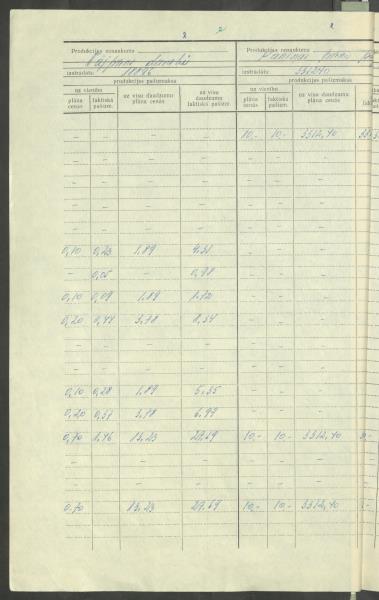 2 2 2
Produkcijas nosaukums Produkcijas nosaukums
izstrādāts 331240
produkcijas pašizmaksa produkcijas pašizmaksa
uz vienību uz visu daudzumu plāna cenās uz visu daudzumu faktiskā pašizm. uz vienību uz visu daudzumu plāna cenās
plāna cenās faktiskā pašizm. plāna cenās faktiskā pašizm.
— — — — 10,- 10,- 3312,40
— — — — — — —
— — — — — — —
— — — — — — —
— — — — — — —
0,10 0,23 1,89 4,31 — — —
— 0,05 — 0,98 — — —
0,10 0,09 1,89 1,72 — — —
0,20 0,44 3,78 8,34 — — —
— — — — — — —
— — — — — — —
0,10 0,28 1,89 5,35 — — —
0,20 0,37 3,78 6,99 — — —
0,70 1,46 13,23 27,69 10,- 10,- 3312,40
— — — — — — —
— — — — — — —
0,70 13,23 27,69 10,- 10,- 3312,40